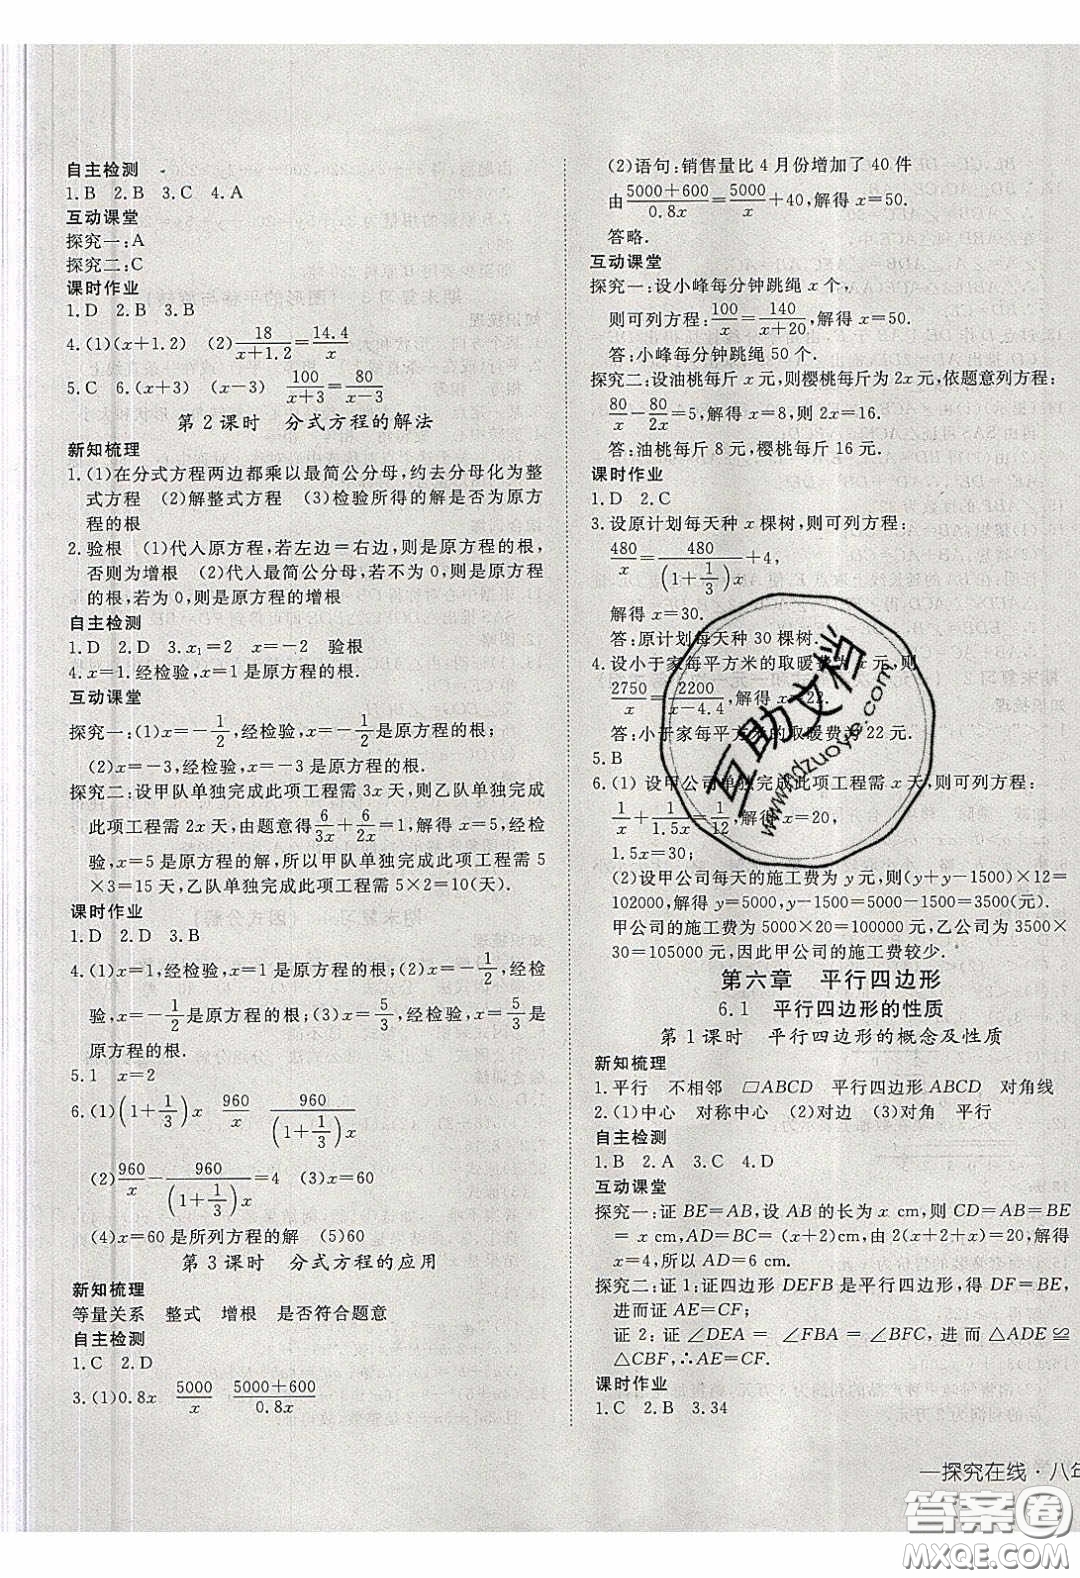 自主检测
1.B 2.B 3.C 4.A
互动课堂
探究一:A
探究二:C
课时作业
1.D 2.B 3.B
4.(1)(x+1.2) (2)18/(x+1.2)=14.4/x
5.C 6.(x+3) (x-3) 100/(x+3)=80/(x-3)
第2课时 分式方程的解法
新知梳理
1.(1)在分式方程两边都乘以最简公分母,约去分母化为整
式方程 (2)解整式方程 (3)检验所得的解是否为原方
程的根
2.验根 (1)代人原方程,若左边=右边,则是原方程的根,
否则为增根 (2)代人最简公分母,若不为0,则是原方程
的根,若为0,则是原方程的增根
自主检测
1.D 2.D 3.x₁=2 x=-2 验根
4.x=1.经检验,x=1是原方程的根.
互动课堂
探究一:(1)x=-1/2,经检验,x=-1/2是原方程的根;
(2)x=-3.经检验,x=-3是原方程的根.
探究二:设甲队单独完成此项工程需3x天,则乙队单独完成
此项工程需2x天,由题意得6/3x+6/2x=1,解得x=5,经检
验,x=5是原方程的解,所以甲队单独完成此项工程需5
×3=15天,乙队单独完成此项工程需5×2=10(天).
课时作业
1.D 2.D 3.B
4.(1)x=1,经检验,x=1是原方程的根;(2)x=-1/2,经检
验,x=-1/2是原方程的根;(3)x=5/3,经检验,x=5/3是
原方程的根.
5.1 x=2
6.(1)(1+1/3)x 960/x 960/(1+1/3)x
(2)960/x-960/(1+1/3)x=4 (3)x=60
(4)x=60是所列方程的解 (5)60
第3课时 分式方程的应用
新知梳理
等量关系 整式 增根 是否符合题意
自主检测
1.C 2.D
3.(1)0.8x 5000/x (5000+600)/0.8x
(2)语句:销售量比4月份增加了40件
由(5000+600)/0.8x=5000/x+40,解得x=50.
答略.
互动课堂
探究一:设小峰每分钟跳绳x个,
则可列方程:100/x=140/(x+20),解得x=50.
答:小峰每分钟跳绳50个.
探究二:设油桃每斤x元,则樱桃每斤为2x元,依题意列方程:
80/x-80/2x=5,解得x=8,则2x=16.
答:油桃每斤8元,樱桃每斤16元.
课时作业
1.D 2.C
3.设原计划每天种x棵树,则可列方程:
480/x=480/(1+1/3)x+4,
解得x=30.
答:原计划每天种30棵树.
4.设小于家每平方米的取暖费为x元,则
2750/x=2200/(x-4.4),解得x=22.
答:小于家每平方米的取暖费为22元.
5.B
6.(1)设甲公司单独完成此项工程需x天,则可列方程:
1/x+1/1.5x=1/12,解得x=20,
1.5x=30;
(2)设甲公司每天的施工费为y元,则(y+y-1500)×12=
102000,解得y=5000,y-1500=5000-1500=3500(元).
甲公司的施工费为5000×20=100000元,乙公司为3500×
30=105000元,因此甲公司的施工费较少.
第六章 平行四边形
6.1 平行四边形的性质
第1课时 平行四边形的概念及性质
新知梳理
1.平行 不相邻 □ABCD 平行四边形ABCD 对角线
2.(1)中心 对称中心 (2)对边 (3)对角 平行
自主检测
1.B 2.A 3.C 4.D
互动课堂
探究一:证BE=AB,设AB的长为x cm,则CD=AB=BE
=x cm,AD=BC=(x+2)cm,由2(x+2+x)=20,解得
x=4,所以AD=6 cm.
探究二:证1:证四边形DEFB是平行四边形,得DF=BE,
进而证AE=CF;
证2:证∠DEA=∠FBA=∠BFC,进而△ADE≌
△CBF,∴AE=CF.
课时作业
1.C 2.B 3.34
—探究在线·八年
互助文档
www.hdzuoye.com
答案圈
MXQE.COM